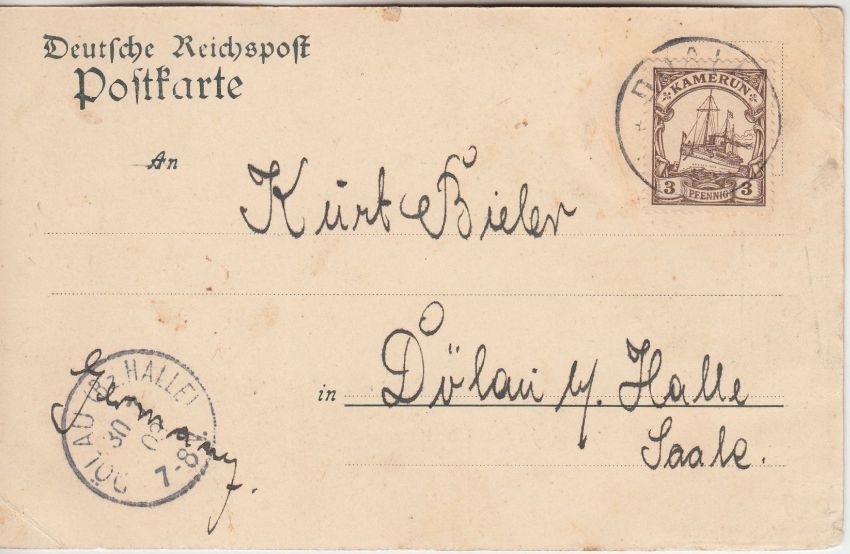 Deutsche Reichspost
Postkarte
KAMERUN
3 PFENNIG 3
An
Kurt Bieler
in Dölau b/ Halle
Saale.
Germany.
DÖLAU (BZ. HALLE)
30
7-8